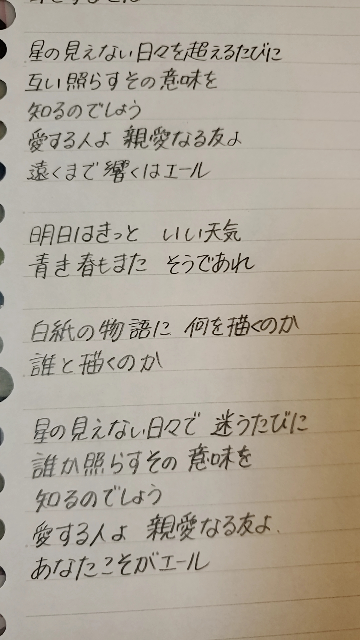 星の見えない日々を超えるたびに
互い照らすその意味を
知るのでしょう
愛する人よ 親愛なる友よ
遠くまで響くはエール
明日はきっと いい天気
青き春もまた そうであれ
白紙の物語に 何を描くのか
誰と描くのか
星の見えない日々で 迷うたびに
誰か照らすその意味を
知るのでしょう
愛する人よ 親愛なる友よ
あなたこそがエール